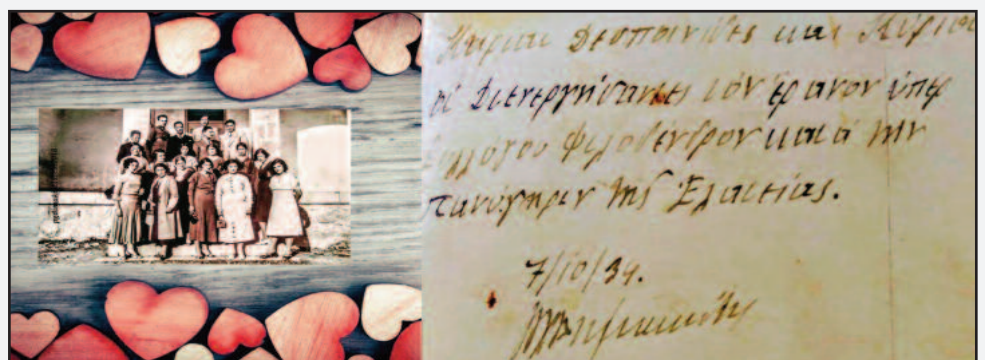 Κυρίαι Δεσποινίδες και Κύριοι
οἱ Διενεργήσαντες τόν ἔρανον ὑπέρ
Συλλόγου Φιλοδένδρον κατά τήν
πανύγηριν τῆς Ἐλατείας.
7/10/34.